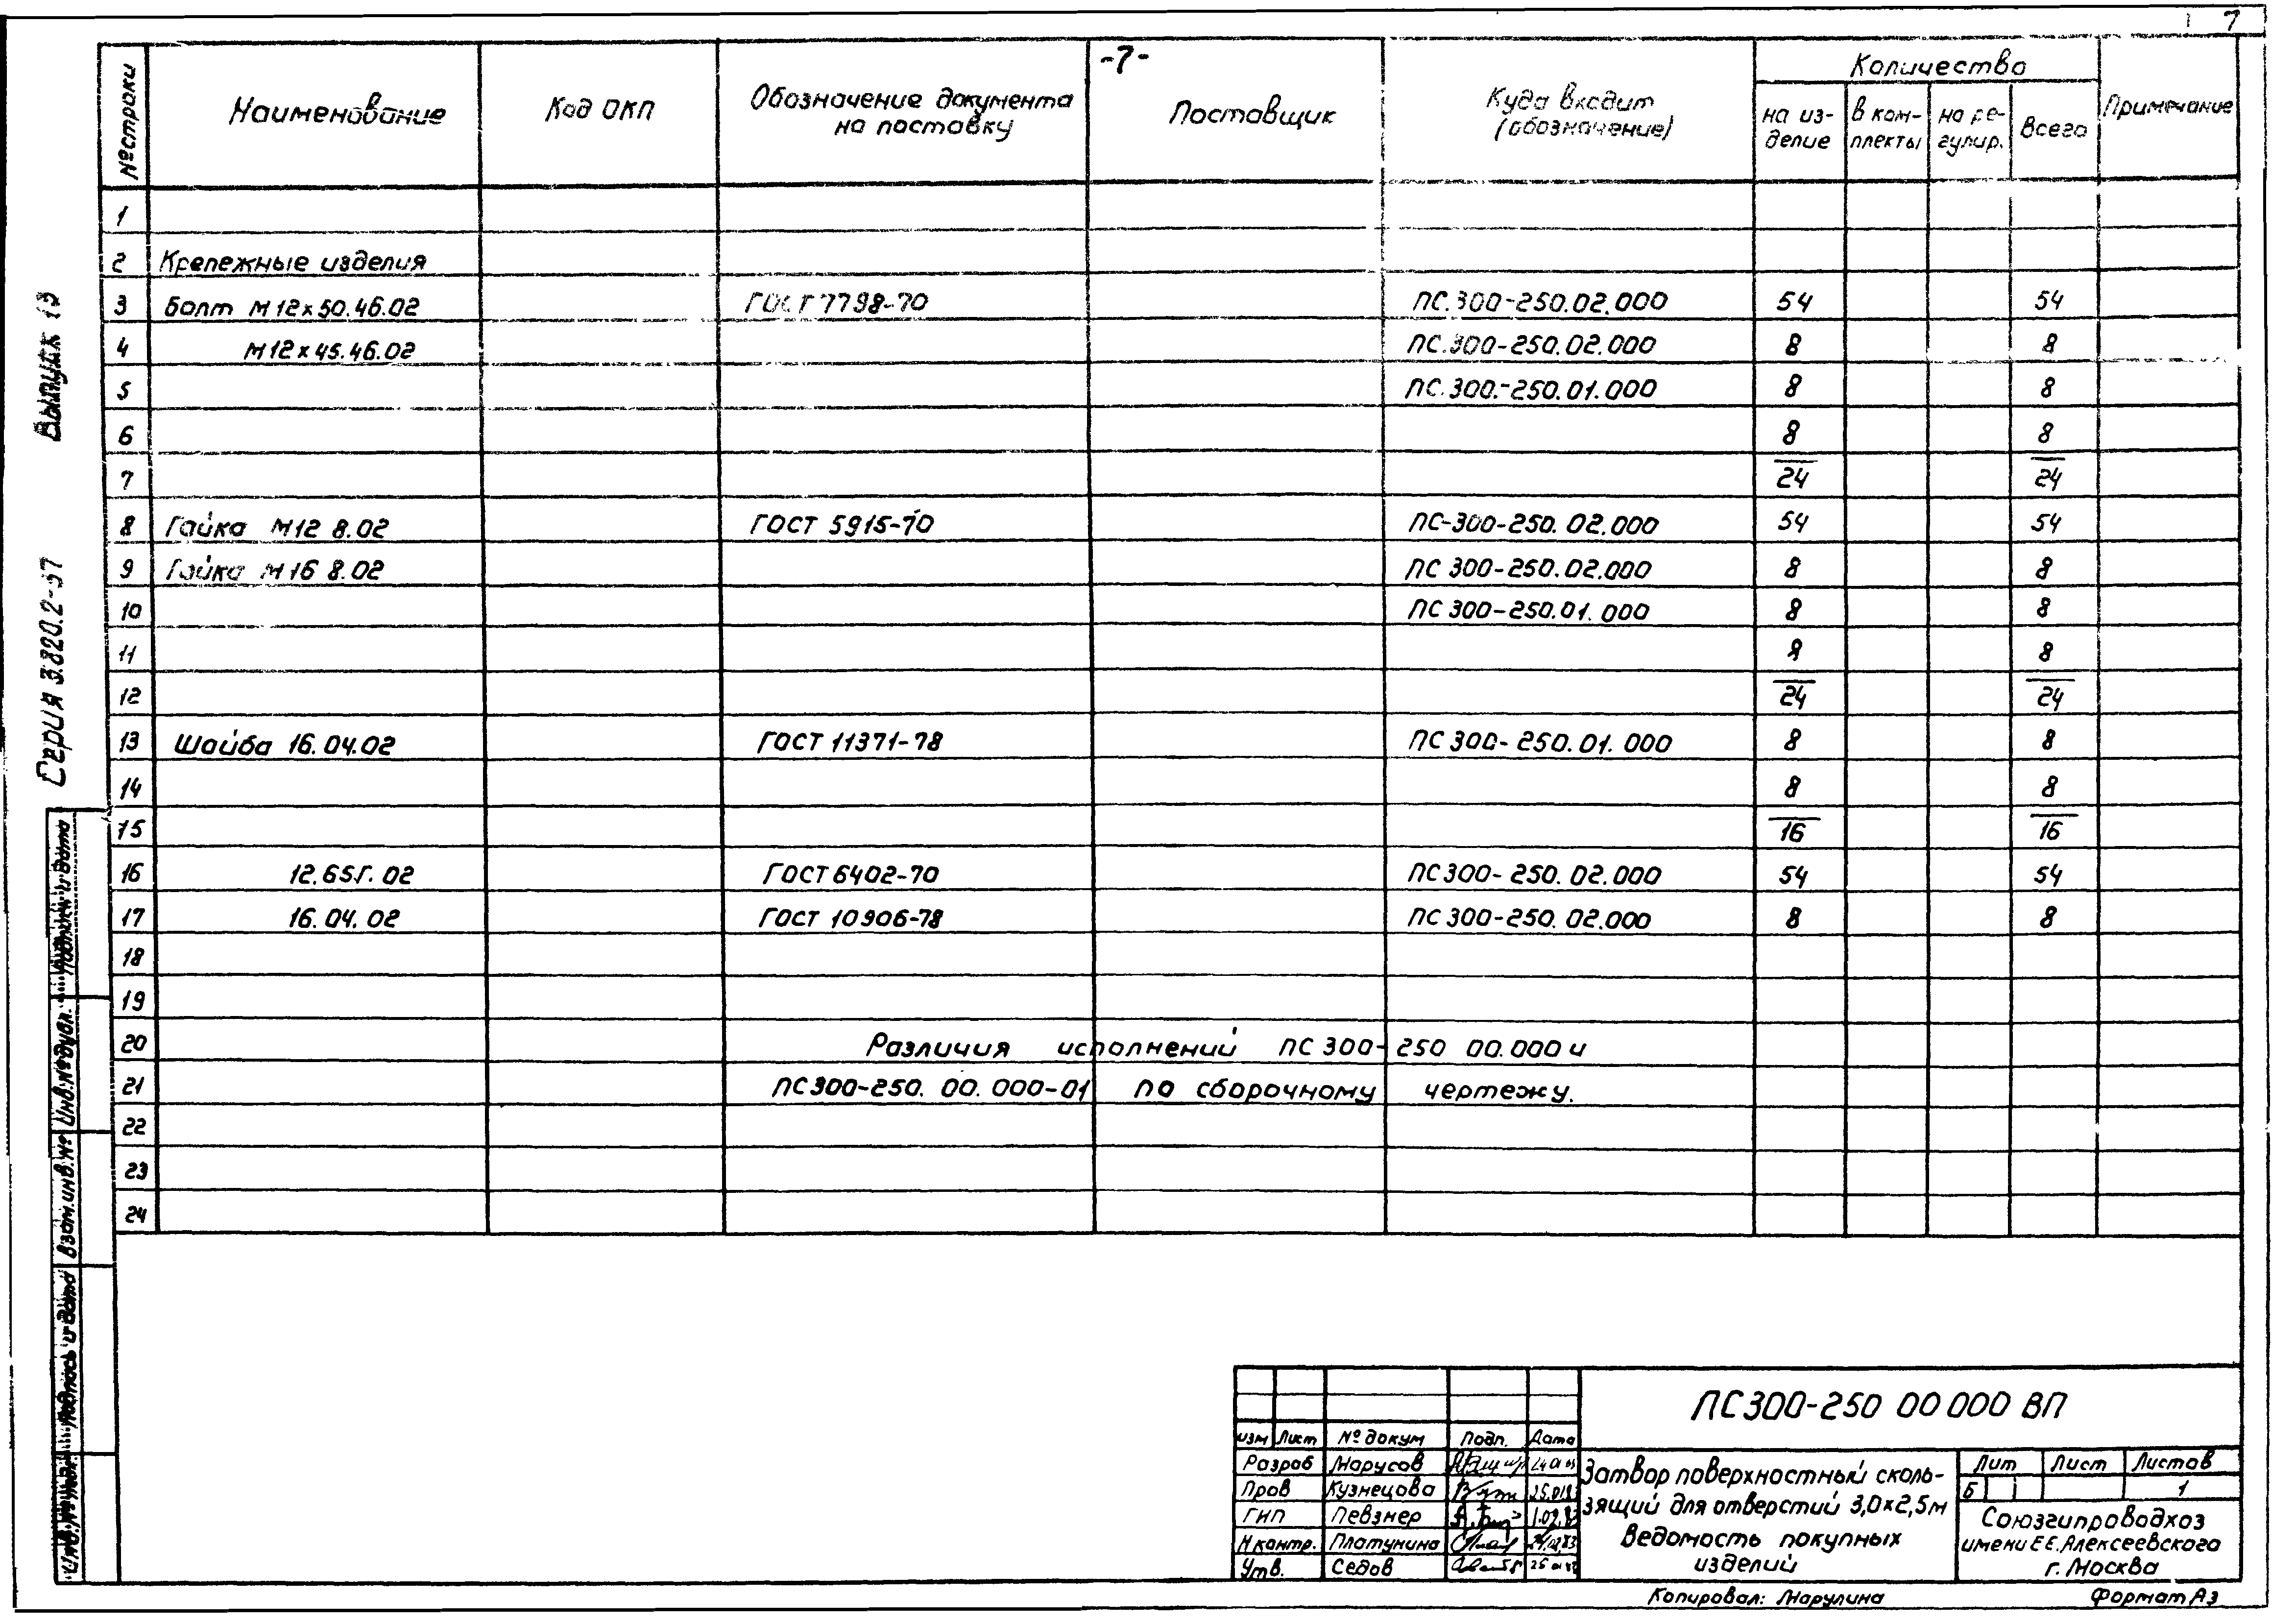 7
-7-
№ строки
Наименование
Код ОКП
Обозначение документа
на поставку
Поставщик
Куда входит
(обозначение)
Количество
на из-
делие
в ком-
плекты
на ре-
гулир.
Всего
Примечание
1
2 Крепежные изделия
3 Болт М12х50.46.02 ГОСТ 7798-70 ПС.300-250.02.000 54 54
4 М12х45.46.02 ПС.300-250.02.000 8 8
5 ПС.300.-250.01.000 8 8
6 8 8
7 24 24
8 Гайка М12 8.02 ГОСТ 5915-70 ПС-300-250.02.000 54 54
9 Гайка М16 8.02 ПС 300-250.02.000 8 8
10 ПС 300-250.01.000 8 8
11 8 8
12 24 24
13 Шайба 16.04.02 ГОСТ 11371-78 ПС 300-250.01.000 8 8
14 8 8
15 16 16
16 12.65Г.02 ГОСТ 6402-70 ПС300-250.02.000 54 54
17 16.04.02 ГОСТ 10906-78 ПС 300-250.02.000 8 8
18
19
20 Различия исполнений ПС 300-250 00.000 и
21 ПС300-250.00.000-01 по сборочному чертежу.
22
23
24
Серия 3.820.2- Выпуск 13
Подпись и дата
Инв.№ дубл.
Взам.инв.№
Подпись и дата
ПС300-250 00 000 ВП
Изм Лист № докум Подп. Дата
Разраб Марусов
Пров Кузнецова
ГИП Певзнер
Н.контр. Платунина
Утв. Седов
Затвор поверхностный сколь-
зящий для отверстий 3,0×2,5м
Ведомость покупных
изделий
Лит Лист Листов
Б 1
Союзгипроводхоз
имени Е.Е.Алексеевского
г. Москва
Копировал: Марулина
Формат А3